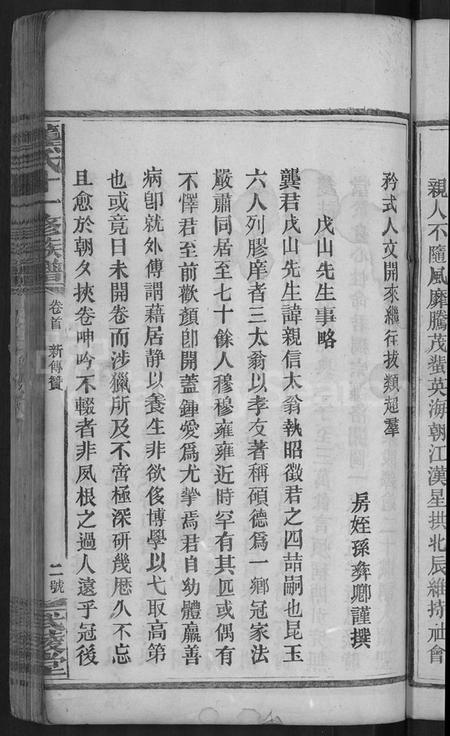 親人不隨風靡騰茂蜚英海朝江漢星拱北辰維持社會
矜式人文開來繼往拔類超羣
房姪孫彝卿謹撰
戌山先生事略
龔君戌山先生諱親信太翁執昭徵君之四喆嗣也昆玉
六人列膠庠者三太翁以孝友著稱碩德爲一鄉冠家法
嚴肅同居至七十餘人穆穆雍雍近時罕有其匹或偶有
不懌君至前歡顏卽開蓋鍾愛爲尤摯焉君自幼體羸善
病卽就外傅謂藉居静以養生非欲侈博學以弋取高第
也或竟日未開卷而涉獵所及不啻極深研幾歷久不忘
且愈於朝夕挾卷呻吟不輟者非夙根之過人遠乎冠後
氏十一修族譜
卷首 新傳贊
二號
堂